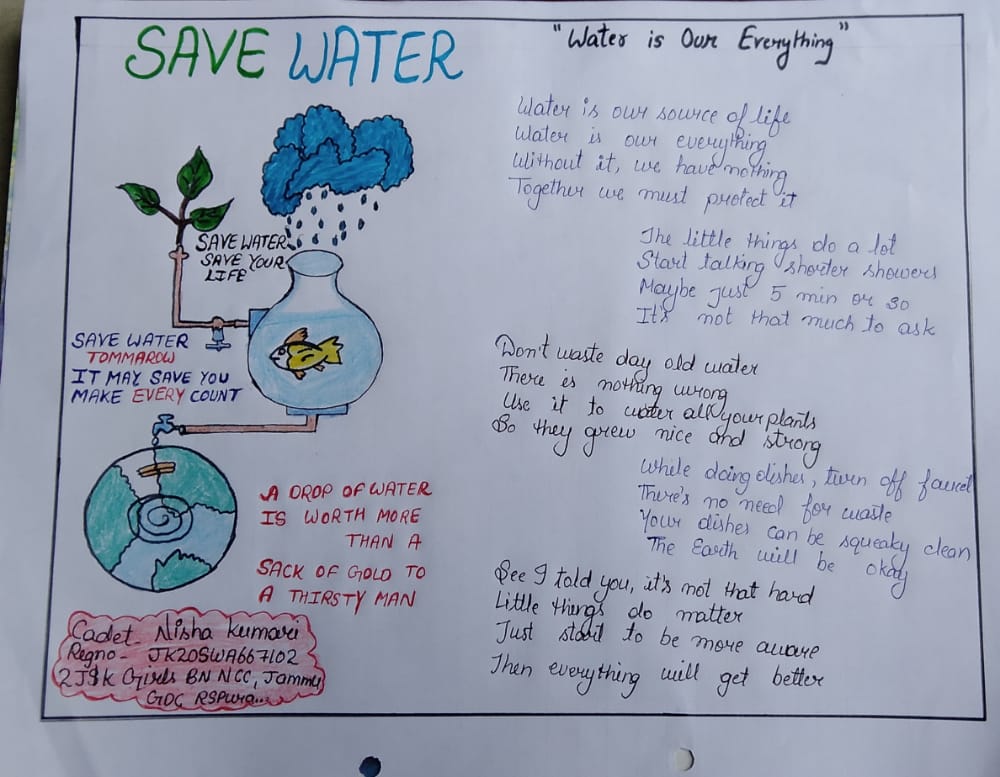 SAVE WATER
SAVE WATER
SAVE YOUR
LIFE
SAVE WATER
TOMMAROW
IT MAY SAVE YOU
MAKE EVERY COUNT
A DROP OF WATER
IS WORTH MORE
THAN A
SACK OF GOLD TO
A THIRSTY MAN
Cadet- Nisha Kumari
Regno- JK20SWA667102
2J&K Girls BN NCC, Jammu
GDC RSPura...
"Water is Our Everything"
Water is our source of life
Water is our everything
Without it, we have nothing
Together we must protect it
The little things do a lot
Start talking shorter showers
Maybe just 5 min or so
It's not that much to ask
Don't waste day old water
There is nothing wrong
Use it to water all your plants
So they grew nice and strong
While doing dishes, turn off faucet
There's no need for waste
Your dishes can be squeaky clean
The Earth will be okay
See I told you, it's not that hard
Little things do matter
Just start to be more aware
Then everything will get better